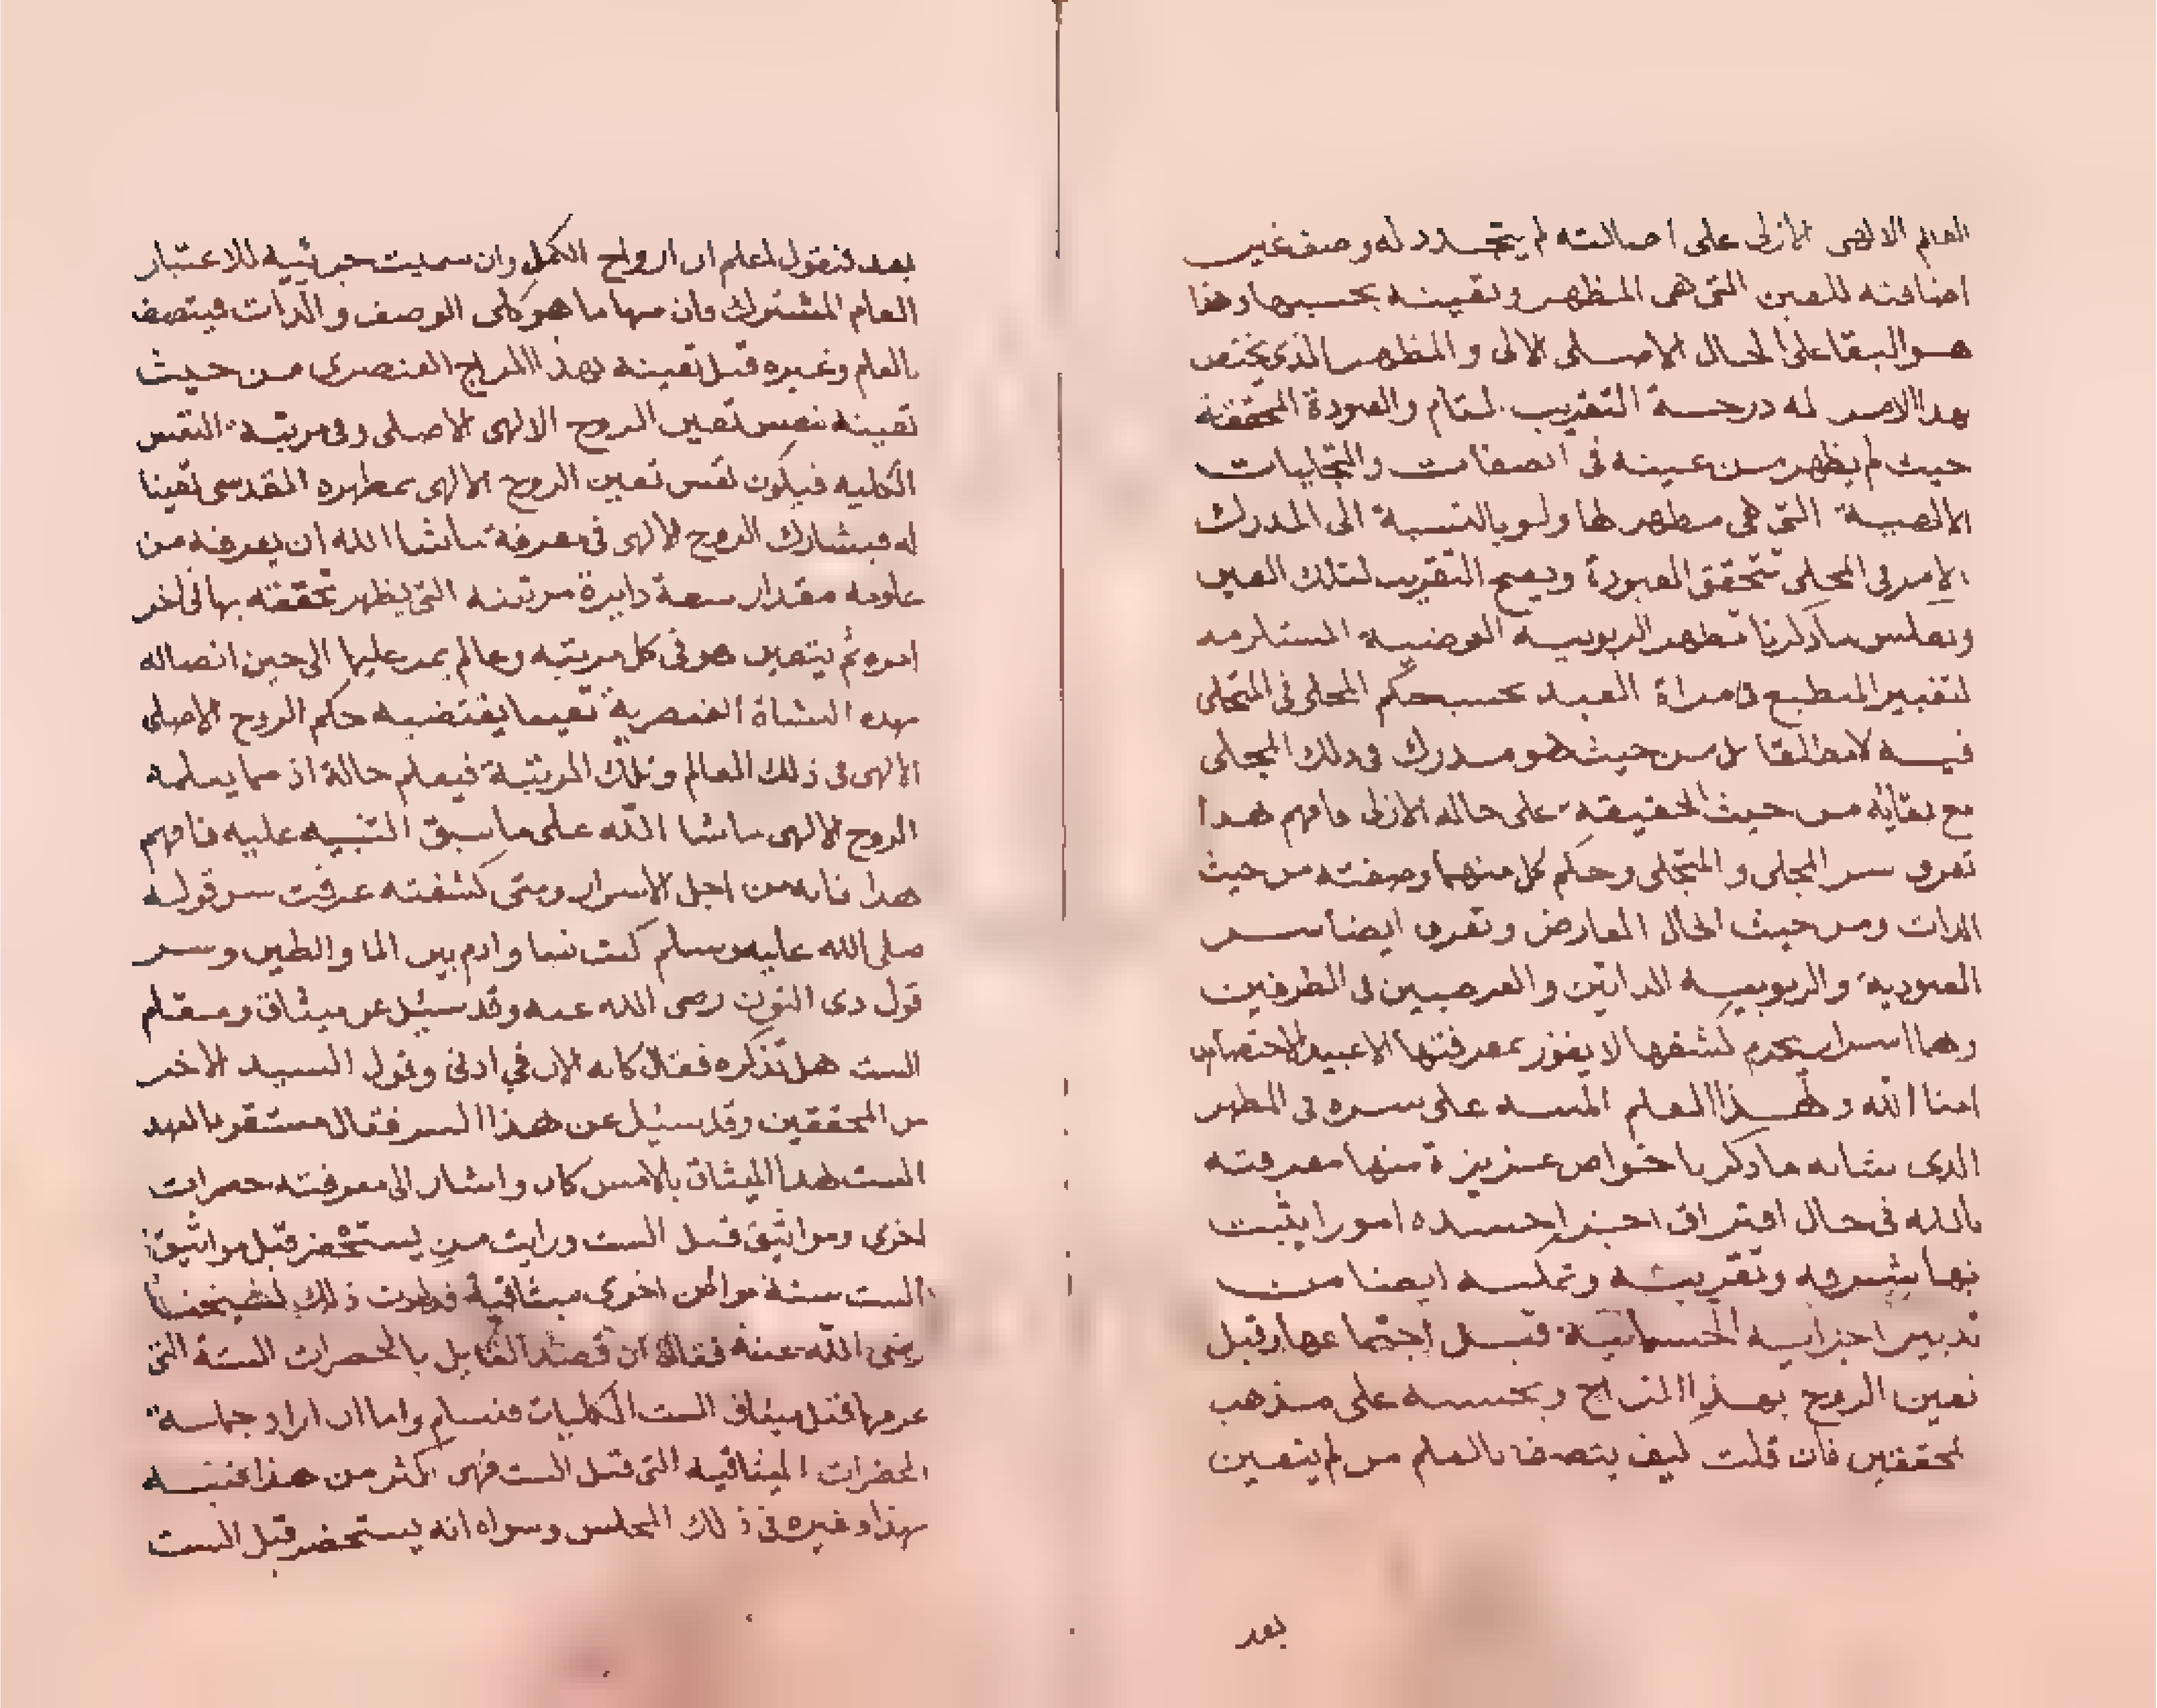 العلم الالهى الازلى على اصالته لم يتجدد له وصف غير
اضافته للعين التى هى المظهر وتعينه بحسبها وهذا
هو البقا على الحال الاصلى الالى والمظهر الذى يختص
بهذا الامر له درجة التقريب التام والعبودة المحققة
حيث لم يظهر من عينه فى الصفات والتجليات
الالهية التى هى مظهر لها ولو بالنسبة الى المدرك
الامر فى المجلى تتحقق العبودة ويصح التقريب لتلك العين
وبعكس ما ذكرنا تظهر الربوبية العرضية المستلزمه
لتغيير المنطبع فى مراة العبد بحسب حكم المجلى فى المتجلى
فيه لا مطلقا بل من حيث هو مدرك فى ذلك المجلى
مع بقائه من حيث الحقيقة على حاله الازلى فافهم هذا
تعرف سر المجلى والمتجلى وحكم كل منهما وصفته من حيث
الذات ومن حيث الحال العارض وتعرف ايضا سر
العبودية والربوبية الذاتين والعرضيين فى الطرفين
وهما اسرار يحرم كشفها لا يفوز بمعرفتها الا عبيد الاختصاص
امنا الله ولهذا العلم المنبه على سره فى المظهر
الذى شانه ما ذكرنا خواص عزيزة منها معرفته
بالله فى حال افتراق اجزا جسده امورا يثبت
بها شرفه وتقريبه وتمكنه ايضا من
تدبير اجزايه الجسمانية قبل اجتماعها وقبل
تعين الروح بهذا المزاج وبحسبه على مذهب
المحققين فان قلت كيف يتصف بالعلم من لم يتعين
بعد
بعد فنقول اعلم ان ارواح الكمل وان سميت جزئية للاعتبار
العام المشترك فان منها ما هو كلى الوصف والذات فيتصف
بالعلم وغيره قبل تعينه بهذا المزاج العنصرى من حيث
تعينه بنفس تعين الروح الالهى الاصلى وفى مرتبة النفس
الكلية فيكون نفس تعين الروح الالهى بمظهره القدسى تعينا
له فيشارك الروح الالهى فى معرفة ما شا الله ان يعرفه من
علومه مقدار سعة دايرة مرتبته التى يظهر تحققه بها فى اخر
امره ثم يتعين هو فى كل مرتبه وعالم يمر عليها الى حين اتصاله
بهذه النشاة العنصرية تعينا يقتضيه حكم الروح الاصلى
الالهى فى ذلك العالم وتلك المرتبة فيعلم حالة اذ مما يعلمه
الروح الالهى ما شا الله على ما سبق التنبيه عليه فافهم
هذا فانه من اجل الاسرار ومتى كشفته عرفت سر قوله
صلى الله عليه وسلم كنت نبيا وادم بين الما والطين وسر
قول ذى النون رضى الله عنه وقد سئل عن ميثاق ومقام
الست هل تذكره فقال كانه الان في اذنى وقول السيد الاخر
من المحققين وقد سئل عن هذا السر فقال مستقربا لعهد
الست هذا الميثاق بالامس كان واشار الى معرفته حضرات
اخرى ومواثيق قبل الست ورايت من يستحضر قبل مواثيق
الست ستة مواطن اخرى ميثاقية فذكرت ذلك لشيخنا
رضى الله عنه فقال ان قصد القايل بالحضرات الستة التى
عرفها قبل ميثاق الست الكليات فنسلم واما ان اراد جملة
الحضرات الميثاقية التى قبل الست فهى اكثر من هذا فنبه
بهذا وغيره فى ذلك المجلس وسواه انه يستحضر قبل الست